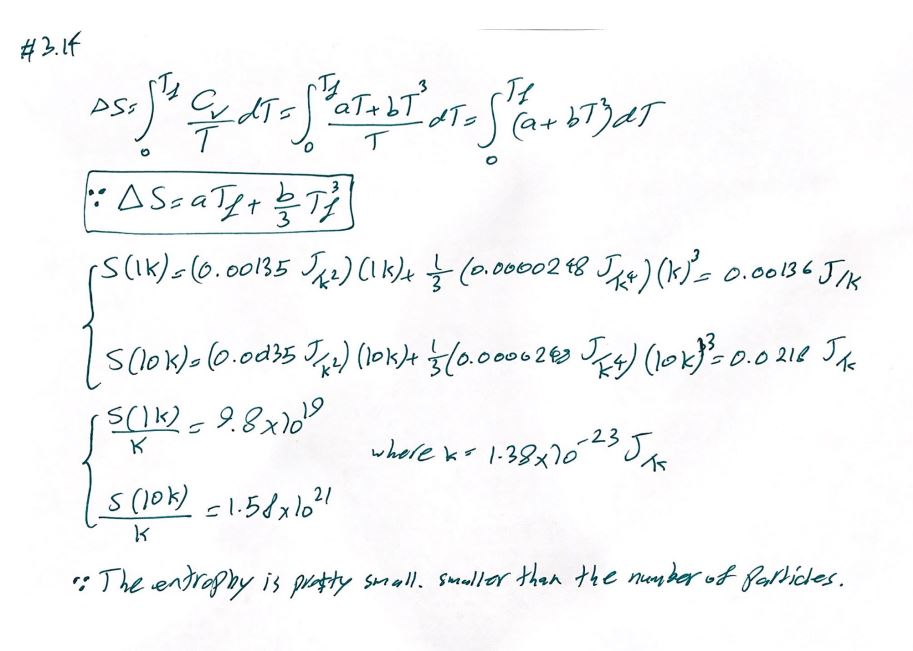 #3.14
ΔS = ∫₀^Tf Cv/T dT = ∫₀^Tf (aT + bT³)/T dT = ∫₀^Tf (a + bT²) dT
∵ ΔS = aTf + b/3 Tf³
S(1K) = (0.00135 J/K²)(1K) + 1/3 (0.0000248 J/K⁴)(K)³ = 0.00136 J/K
S(10K) = (0.00135 J/K²)(10K) + 1/3 (0.0000248 J/K⁴)(10K)³ = 0.0218 J/K
S(1K)/K = 9.8x10¹⁹
where k = 1.38x10⁻²³ J/K
S(10K)/K = 1.58x10²¹
∵ The entrophy is pretty small. smaller than the number of particles.